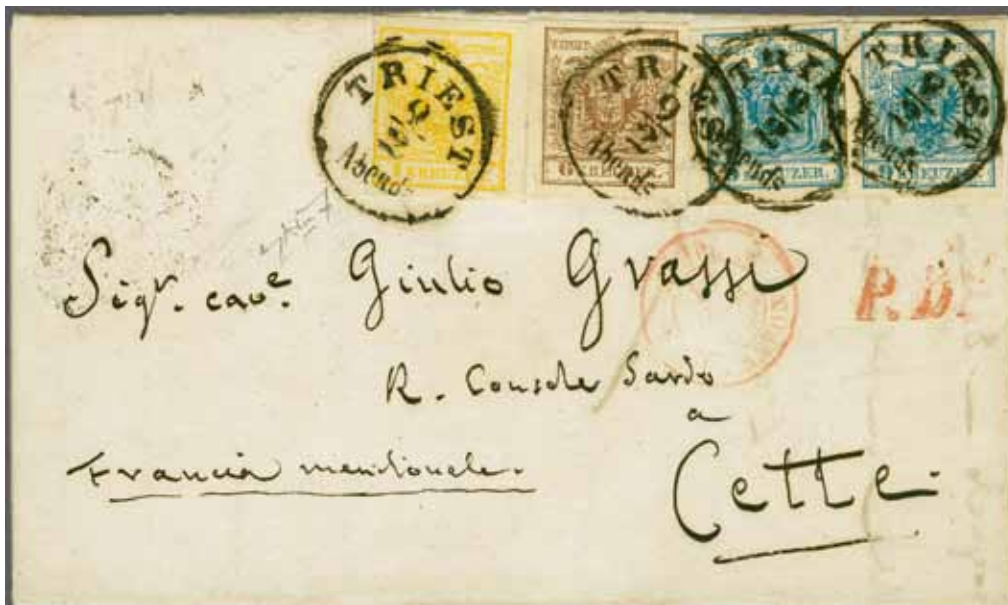 TRIEST
12/9
Abends
TRIEST
12/9
Abends
TRIEST
12/9
TRIEST
12/9
Abends
6 KREUZER.
9 KREUZER.
9 KREUZER.
P.D.
Sigr. cave. Giulio Grassi
R. Console Sardo
a
Cette.
Francia meridionale.